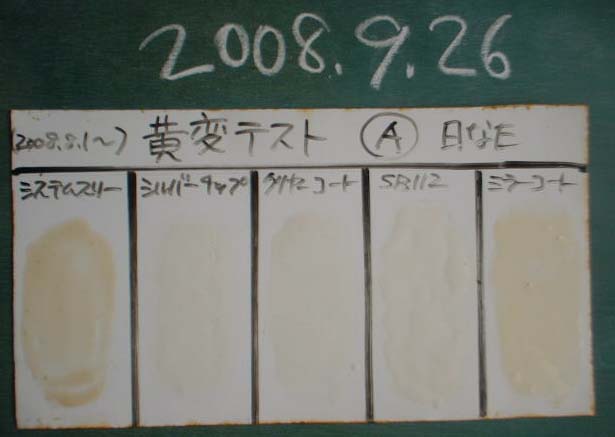 2008.9.26
2008.8.1(~) 黄変テスト Ⓐ 日なた
システムスリー シルバーチップ クリスタルコート SB112 ミラーコート